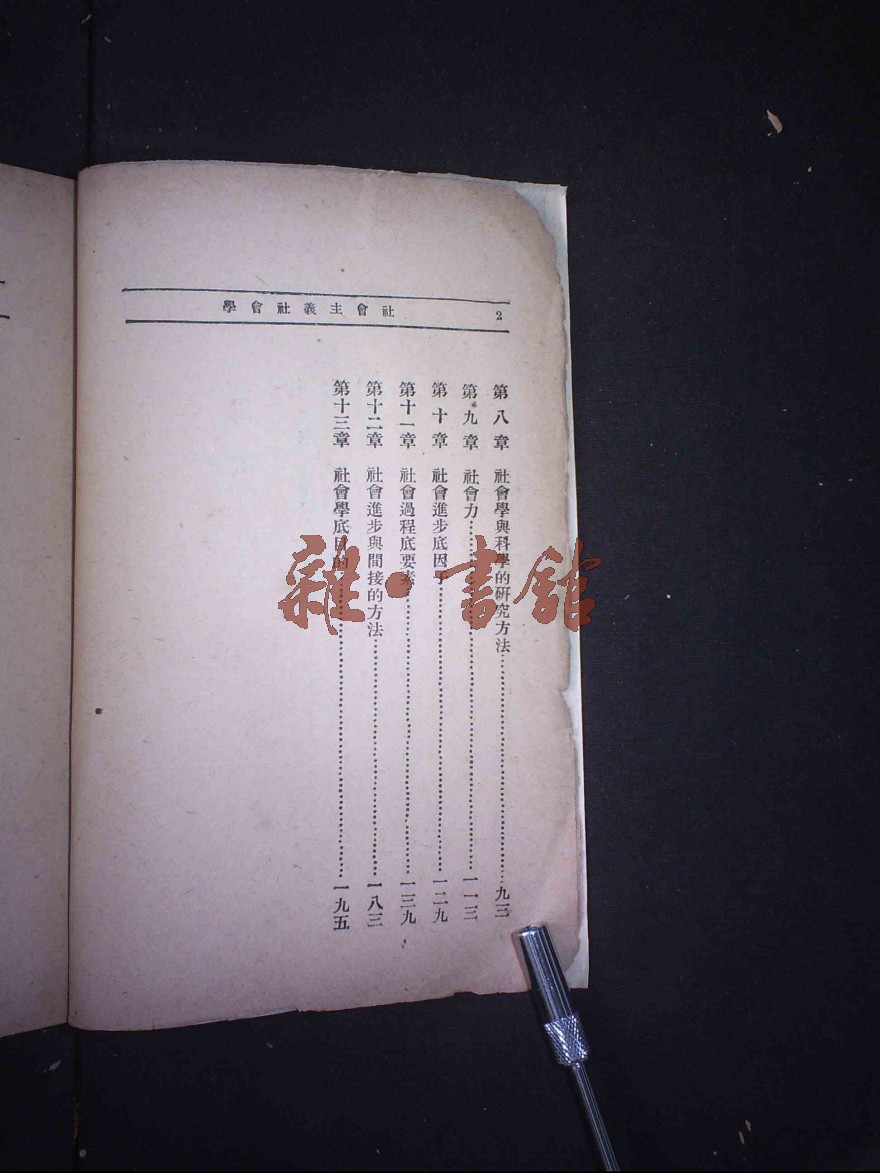 社會主義社會學
2
第八章 社會學與科學的研究方法……九三
第九章 社會力……一一三
第十章 社會進步底因子……一二九
第十一章 社會過程底要素……一三九
第十二章 社會進步與間接的方法……一八三
第十三章 社會學底目的……一九五
雜·書館